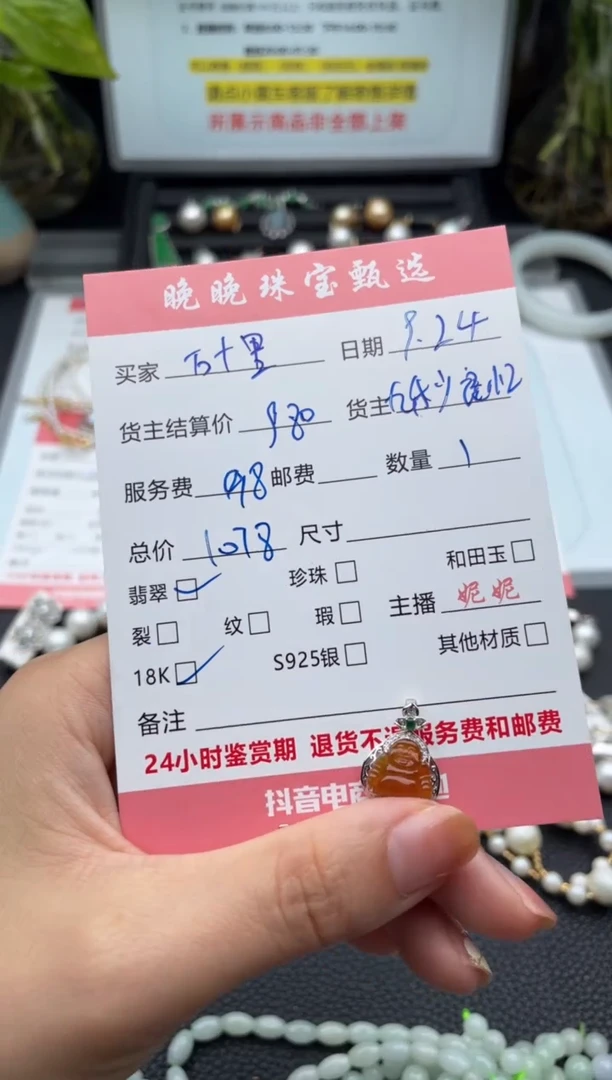 所展示商品非全部上架
晚晚珠宝甄选
买家 万十里 日期 9.24
货主结算价 980 货主
服务费 98 邮费 数量 1
总价 1078 尺寸
翡翠 珍珠 和田玉
裂 纹 瑕 主播 妮妮
18K S925银 其他材质
备注
24小时鉴赏期 退货不退服务费和邮费
抖音电商